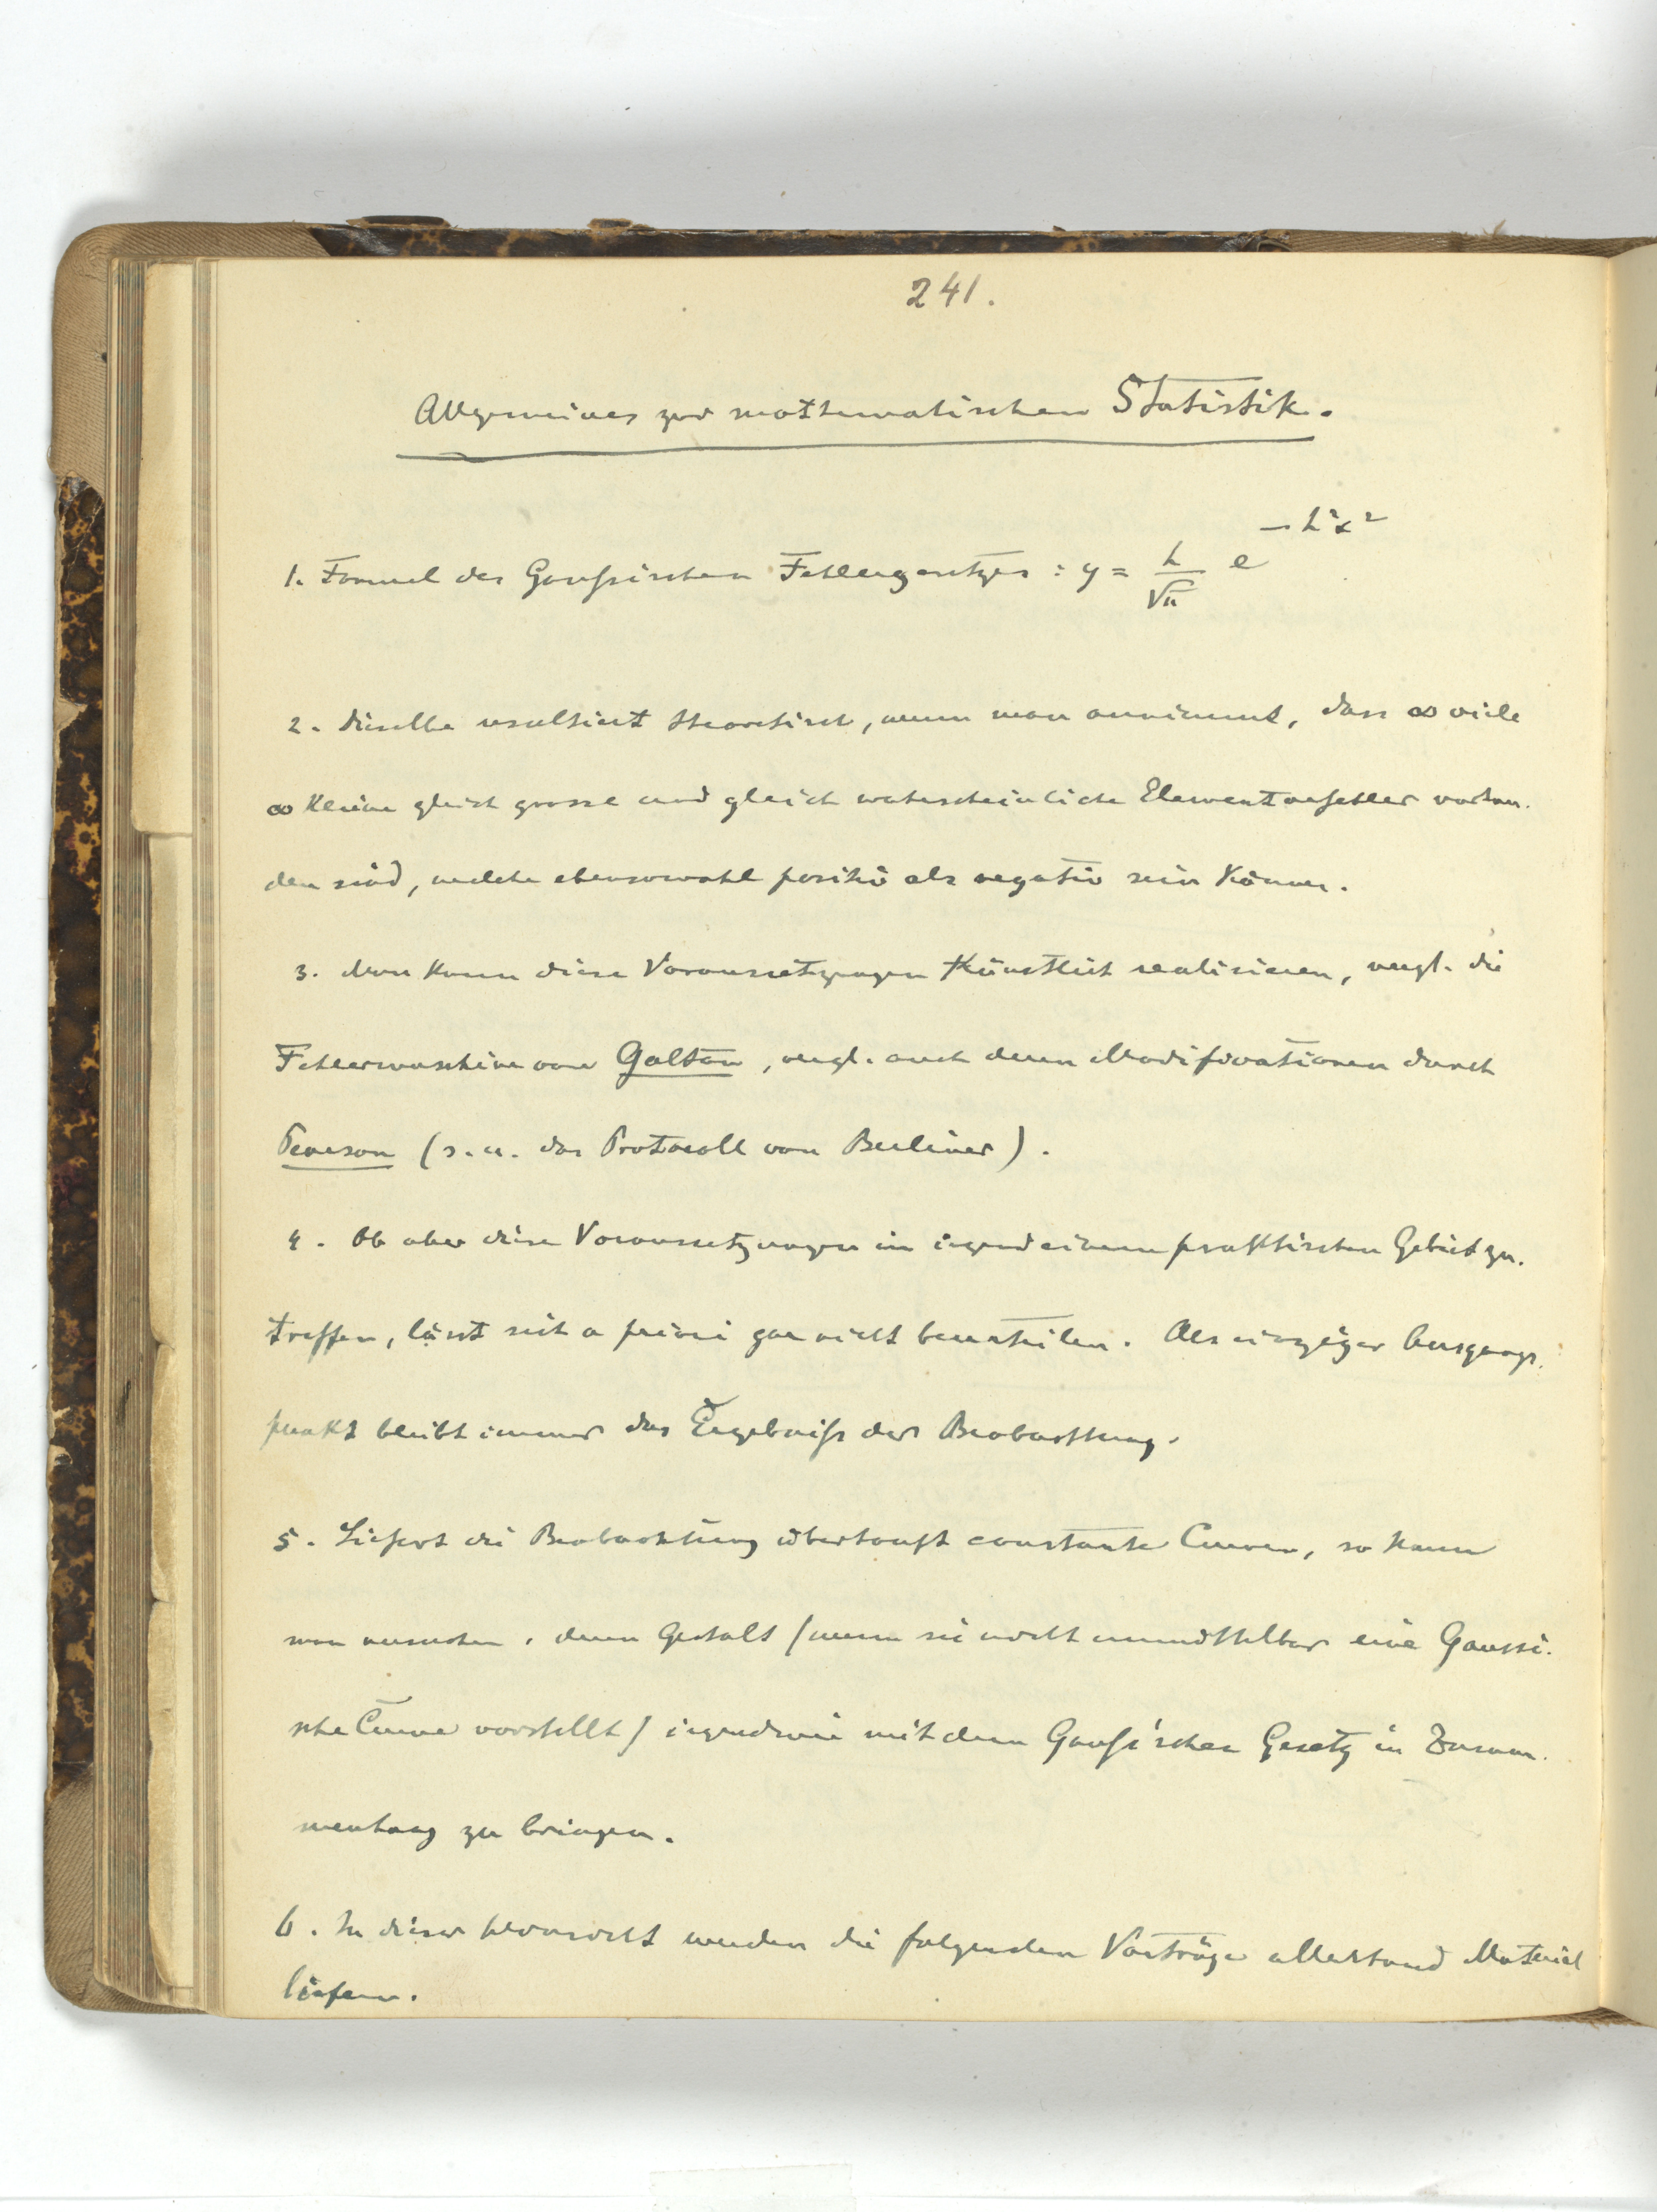 241.
Allgemeines zur mathematischen Statistik.
1. Formel des Gaußischen Fehlergesetzes : y = h/√π e^(−h²x²)
2. Dieselbe resultiert theoretisch, wenn man annimmt, dass ∞ viele
∞ kleine gleich grosse und gleich wahrscheinliche Elementarfehler vorhan-
den sind, welche ebensowohl positiv als negativ sein können.
3. Man kann diese Voraussetzungen künstlich realisieren, vergl. die
Fehlermaschine von Galton, vergl. auch deren Modificationen durch
Pearson (s. u. das Protocoll von Berliner).
4. Ob aber diese Voraussetzungen in irgend einem praktischen Gebiet zu-
treffen, lässt sich a priori gar nicht beurteilen. Als einziger Ausgangs-
punkt bleibt immer das Ergebniß der Beobachtung.
5. Liefert die Beobachtung überhaupt constante Curven, so kann
man versuchen, deren Gestalt (wenn sie nicht unmittelbar eine Gaussi-
sche Curve vorstellt) irgendwie mit dem Gaußischen Gesetz in Zusam-
menhang zu bringen.
6. In dieser Hinsicht werden die folgenden Vorträge allerhand Material
liefern.